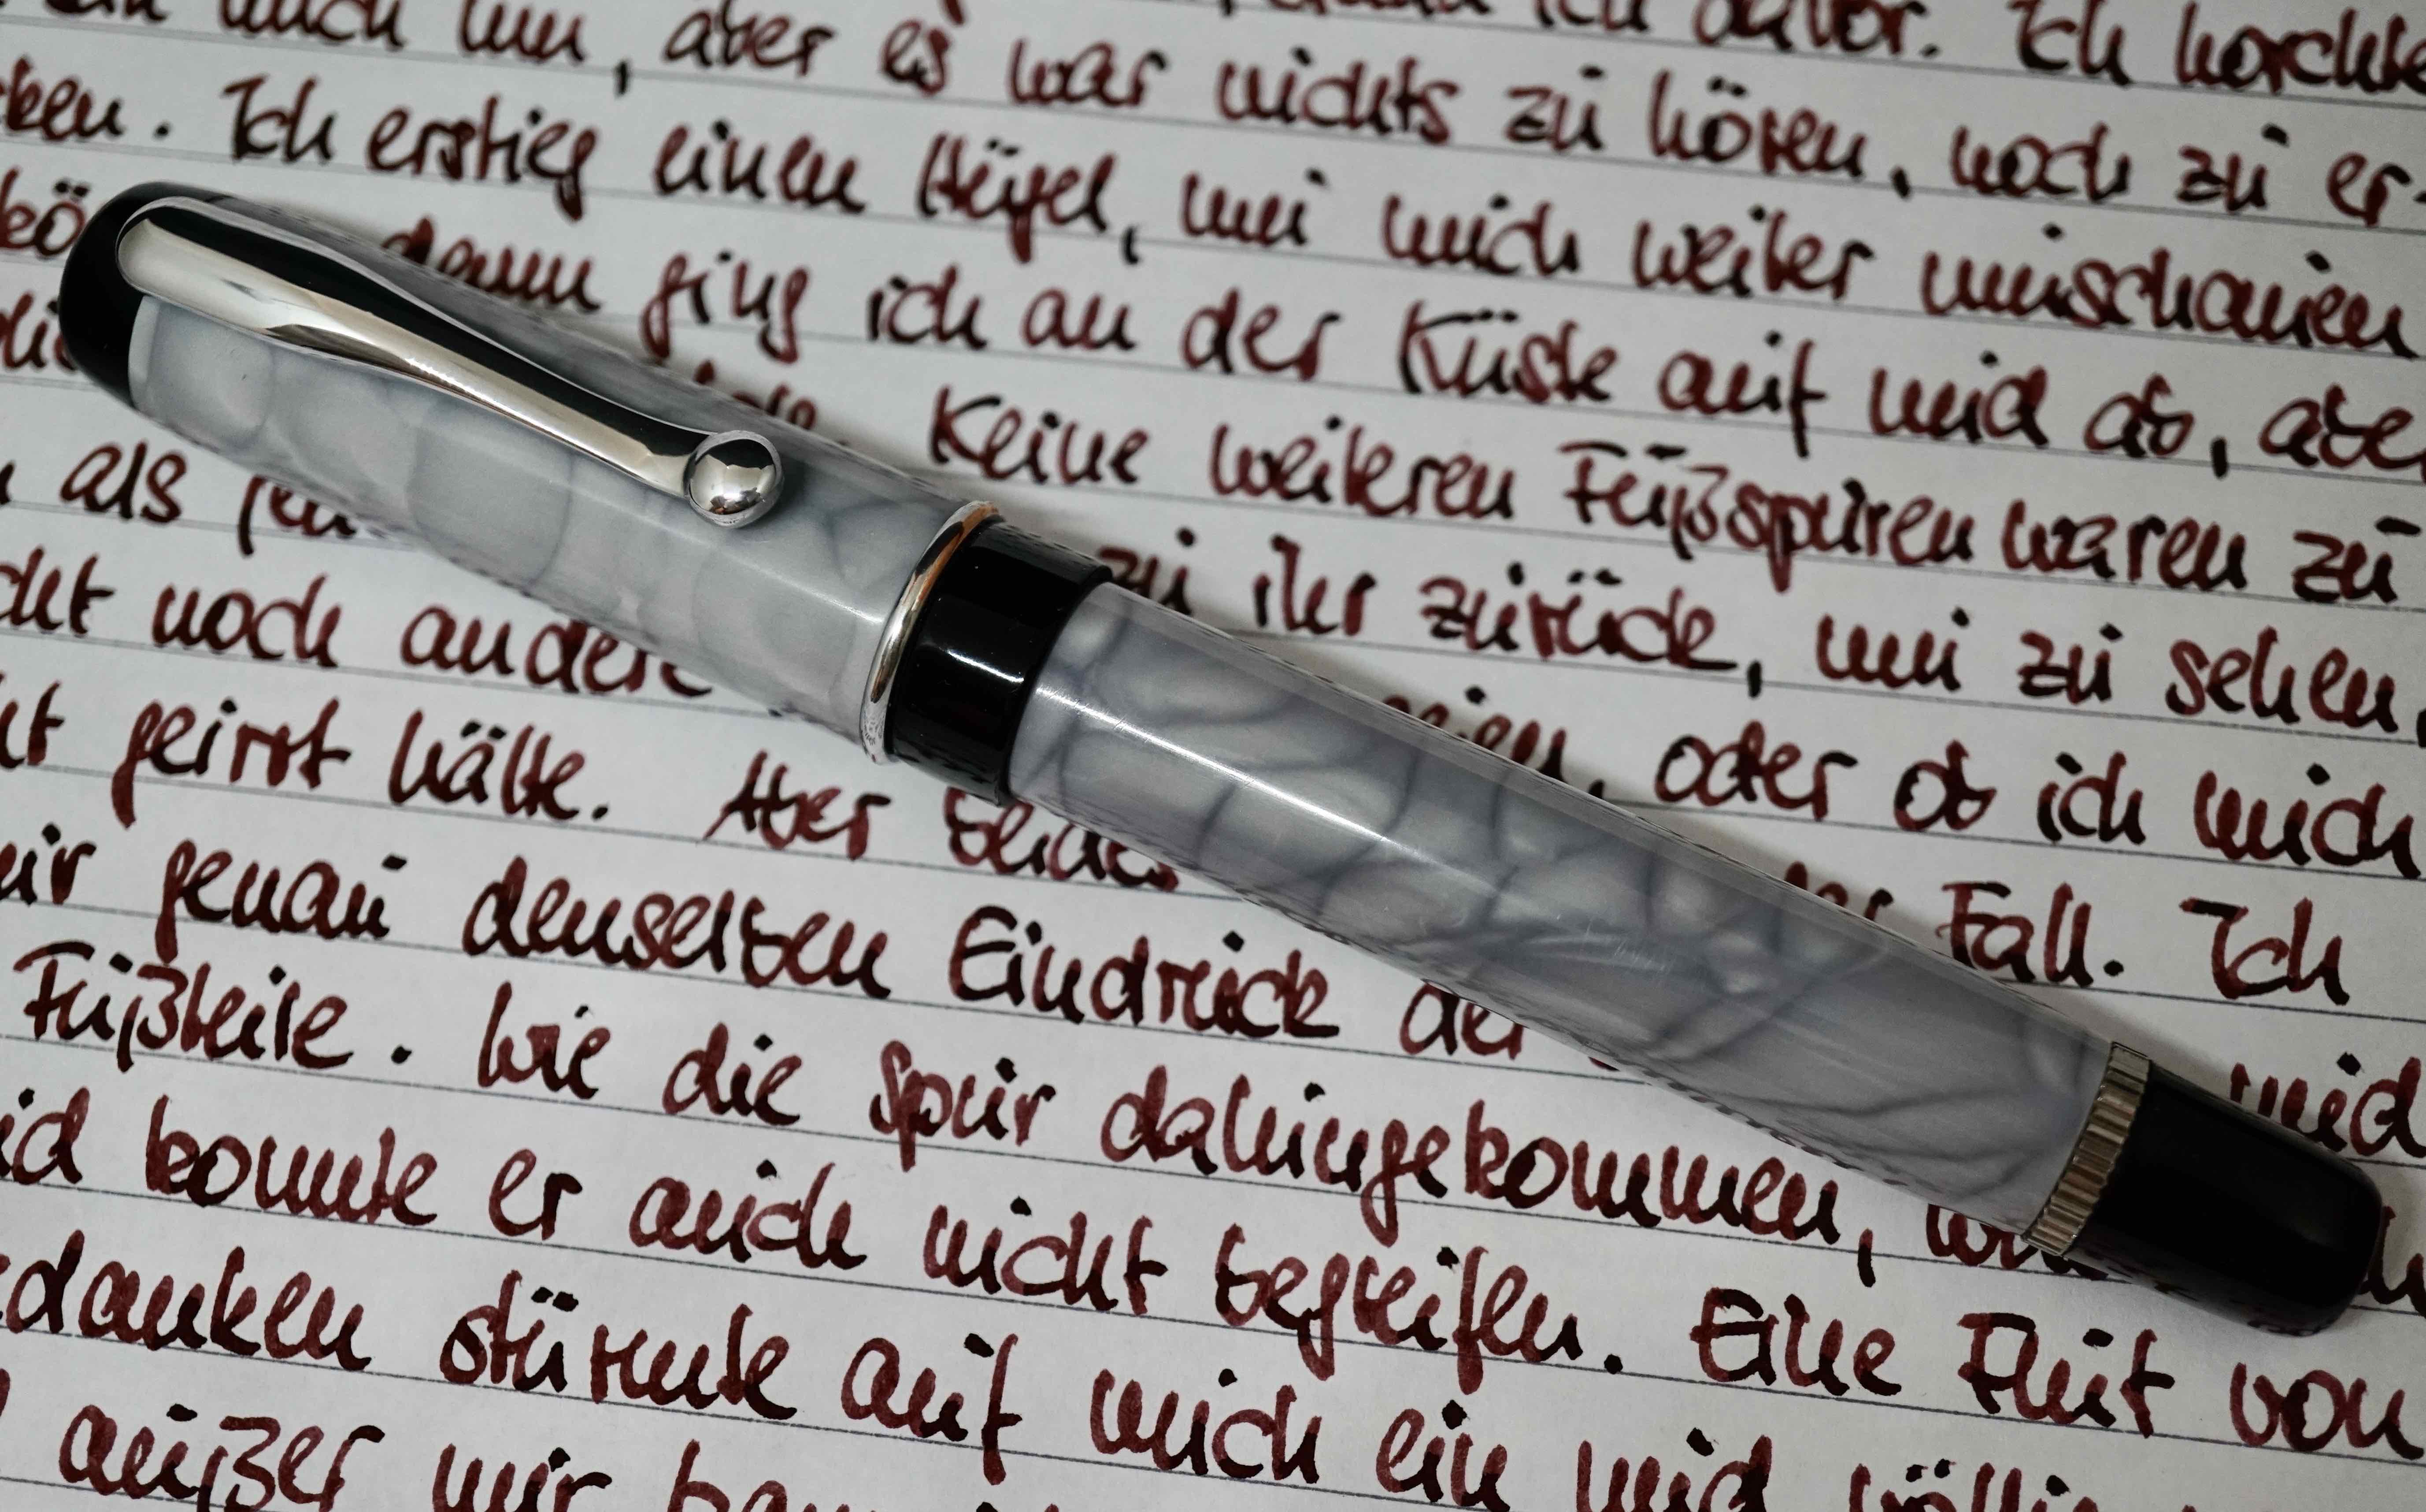 mich um, aber es war nichts zu hören, noch zu er-
ken. Ich erstieg einen Hügel, um mich weiter umschauen
kö dann ging ich an der Küste auf und ab, aber
Keine weiteren Fußspuren waren zu
als zu ihr zurück, um zu sehen,
noch andere oder ob ich mich
geirrt hätte. Aber beides der Fall. Ich
genau denselben Eindruck der und
Fußteile. Wie die Spur dahingekommen,
konnte er auch nicht begreifen. Eine Flut von
danken stürmte auf mich ein und
außer mir